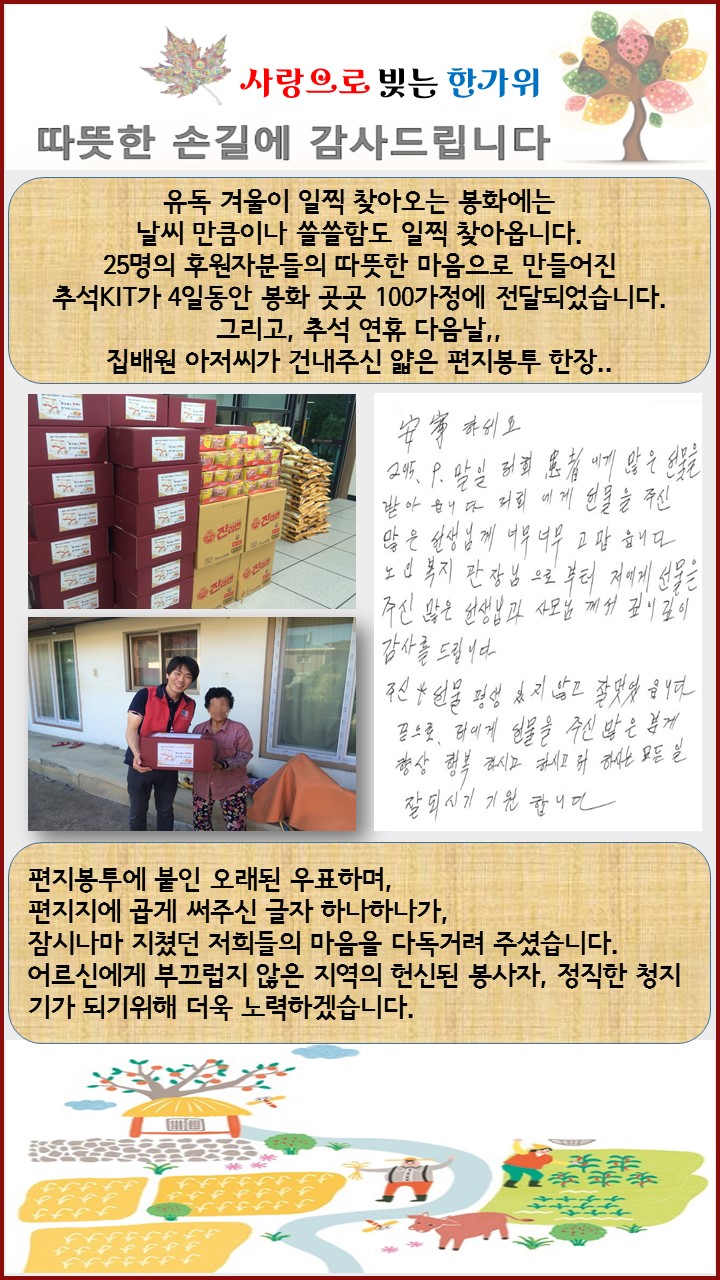 사랑으로 빚는 한가위
따뜻한 손길에 감사드립니다
유독 겨울이 일찍 찾아오는 봉화에는
날씨 만큼이나 쓸쓸함도 일찍 찾아옵니다.
25명의 후원자분들의 따뜻한 마음으로 만들어진
추석KIT가 4일동안 봉화 곳곳 100가정에 전달되었습니다.
그리고, 추석 연휴 다음날,,
집배원 아저씨가 건내주신 얇은 편지봉투 한장..
진라면
安寧 하세요
9. 말일 저희 患者 에게 많은 선물을
받아 읍니다 저희 에게 선물을 주신
많은 선생님께 너무너무 고맙 읍니다
노인복지 관장님 으로부터 저에게 선물은
주신 많은 선생님과 사모님 께서 깊이깊이
감사를 드립니다
주신 선물 평생 잊지 않고 잘먹었 읍니다
끝으로, 저에게 선물을 주신 많은 분께
항상 행복 하시고 하시고저 하사는 모든일
잘되시기 기원 합니다
편지봉투에 붙인 오래된 우표하며,
편지지에 곱게 써주신 글자 하나하나가,
잠시나마 지쳤던 저희들의 마음을 다독거려 주셨습니다.
어르신에게 부끄럽지 않은 지역의 헌신된 봉사자, 정직한 청지
기가 되기위해 더욱 노력하겠습니다.